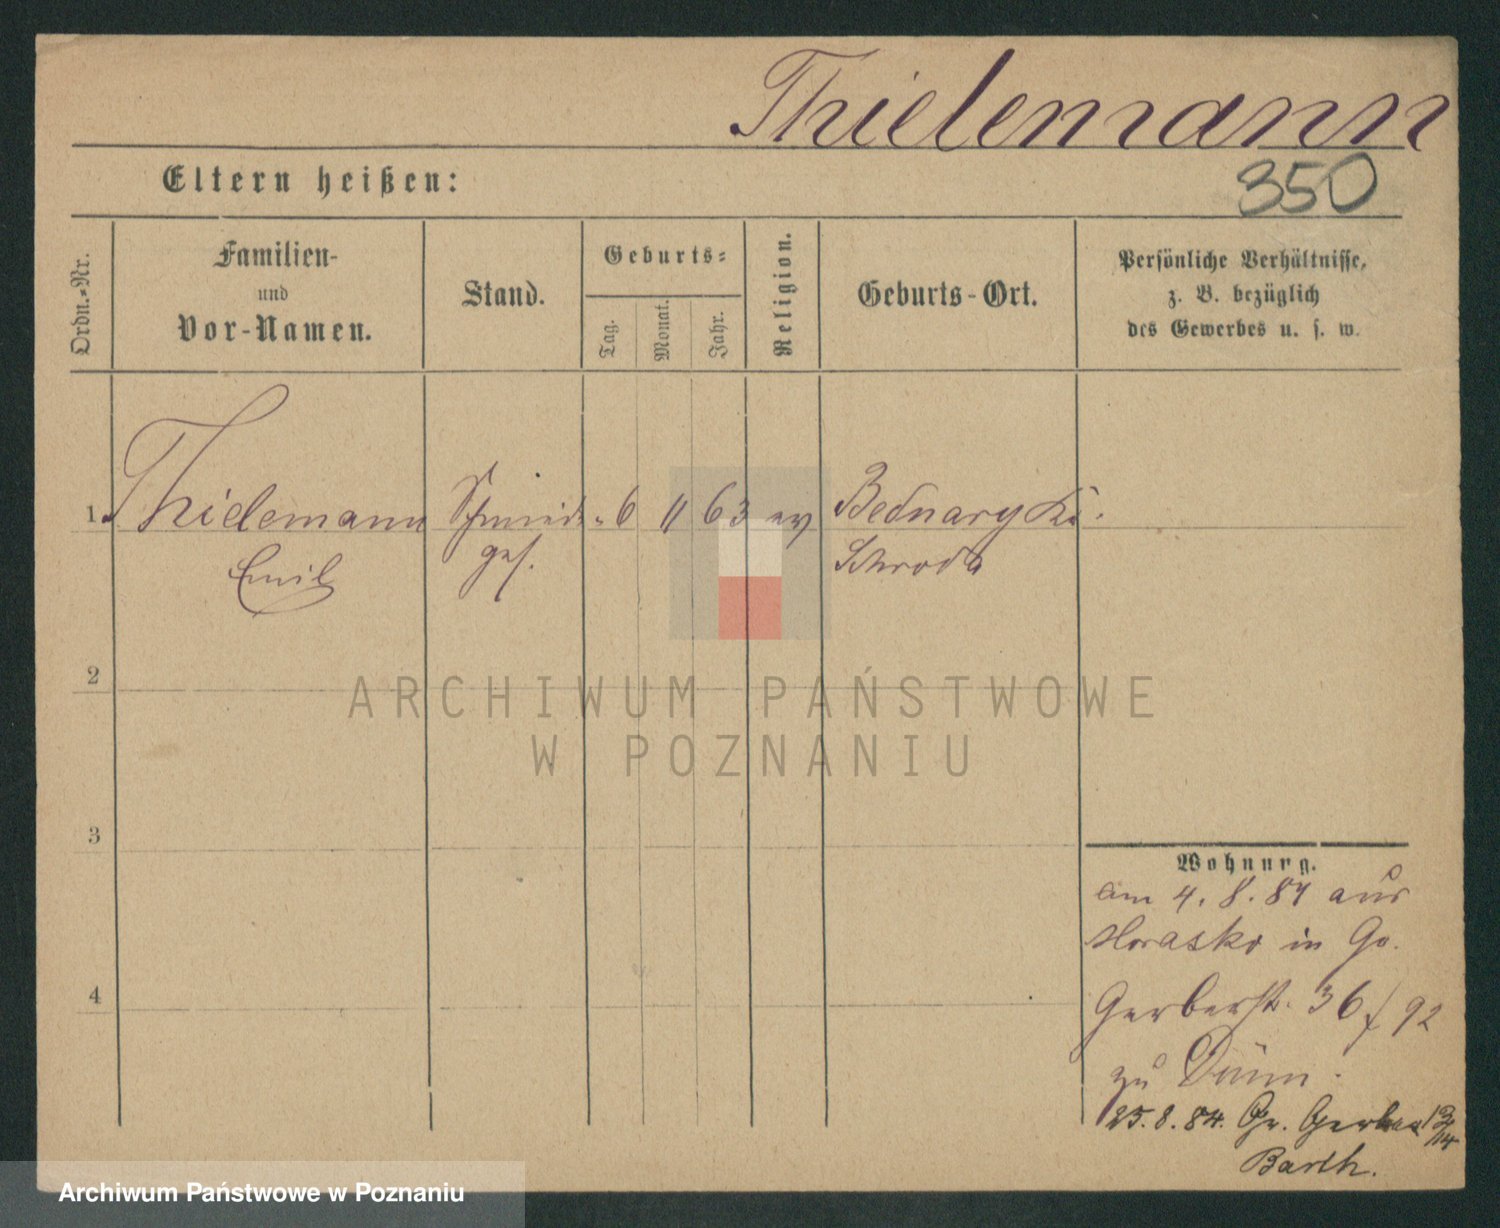 Thielemann
Eltern heißen:
350
Ordn.-Nr.
Familien-
und
Vor-Namen.
Stand.
Geburts-
Tag.
Monat.
Jahr.
Religion.
Geburts-Ort.
Persönliche Verhältnisse,
z. B. bezüglich
des Gewerbes u. s. w.
1 Thielemann Schmied- 6 11 63 ev Bednary Kr.
Emil ges. Schroda
2
3
4
ARCHIWUM PAŃSTWOWE
W POZNANIU
Wohnung.
am 4. 8. 84 aus
in Gr.
Gerberst. 36 / 92
zu Dümm.
25. 8. 84. Gr. Gerber
Barth.
Archiwum Państwowe w Poznaniu